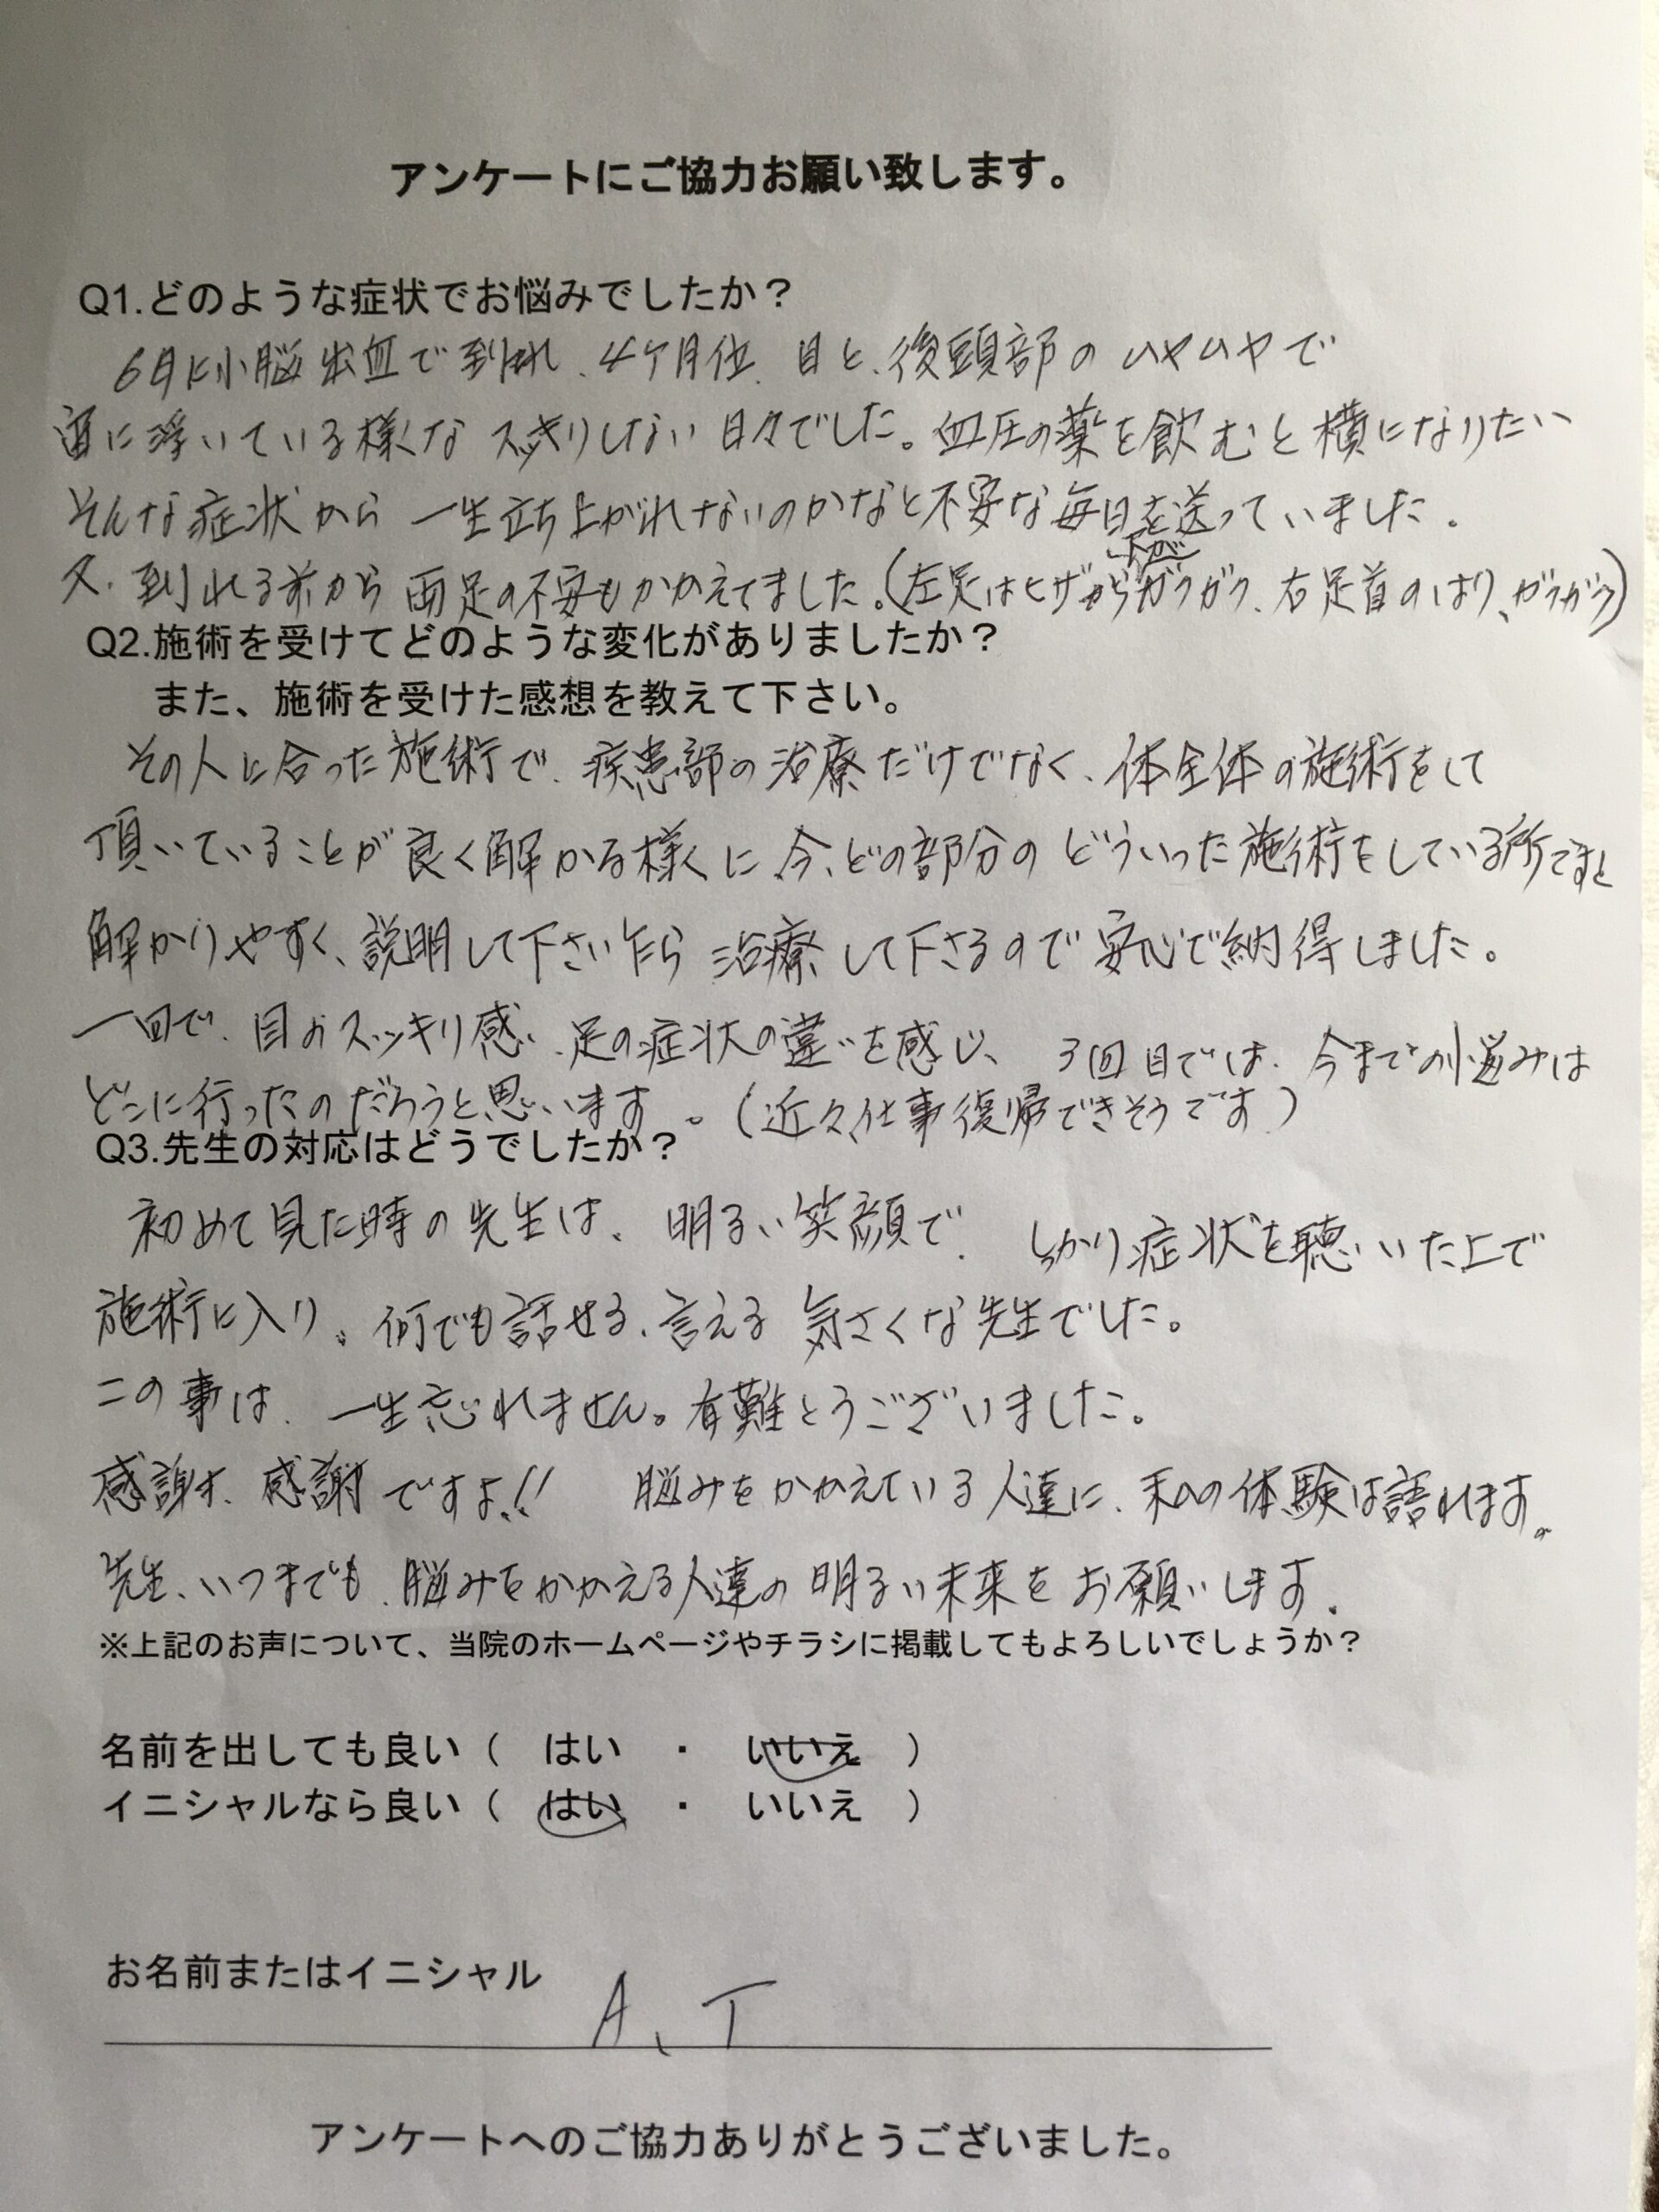 アンケートにご協力お願い致します。
Q1.どのような症状でお悩みでしたか?
6月に小脳出血で到れ、4ケ月位、目と、後頭部のムヤムヤで
宙に浮いている様な スッキリしない日々でした。血圧の薬を飲むと横になりたい
そんな症状から 一生立ち上がれないのかなと不安な毎日を送っていました。
又、到れる前から両足の不安もかかえてました。(左足はヒザから下がガクガク、右足首のはり、ガクガク)
Q2.施術を受けてどのような変化がありましたか?
また、施術を受けた感想を教えて下さい。
その人に合った施術で、疾患部の治療だけでなく、体全体の施術をして
頂いていることが良く解かる様に、今、どの部分の どういった施術をしている所ですと
解かりやすく、説明して下さい乍ら 治療して下さるので安心で納得しました。
一回で、目のスッキリ感、足の症状の違いを感じ、3回目では、今までの悩みは
どこに行ったのだろうと思います。(近々、仕事復帰できそうです)
Q3.先生の対応はどうでしたか?
初めて見た時の先生は、明るい笑顔で、しっかり症状を聴いた上で
施術に入り、何でも話せる、言える 気さくな先生でした。
この事は、一生忘れません。有難とうございました。
感謝、感謝ですよ!! 脳みをかかえている人達に、私の体験は語れます。
先生、いつまでも、脳みをかかえる人達の明るい未来をお願いします。
※上記のお声について、当院のホームページやチラシに掲載してもよろしいでしょうか?
名前を出しても良い ( はい ・ いいえ )
イニシャルなら良い ( はい ・ いいえ )
お名前またはイニシャル A、T
アンケートへのご協力ありがとうございました。